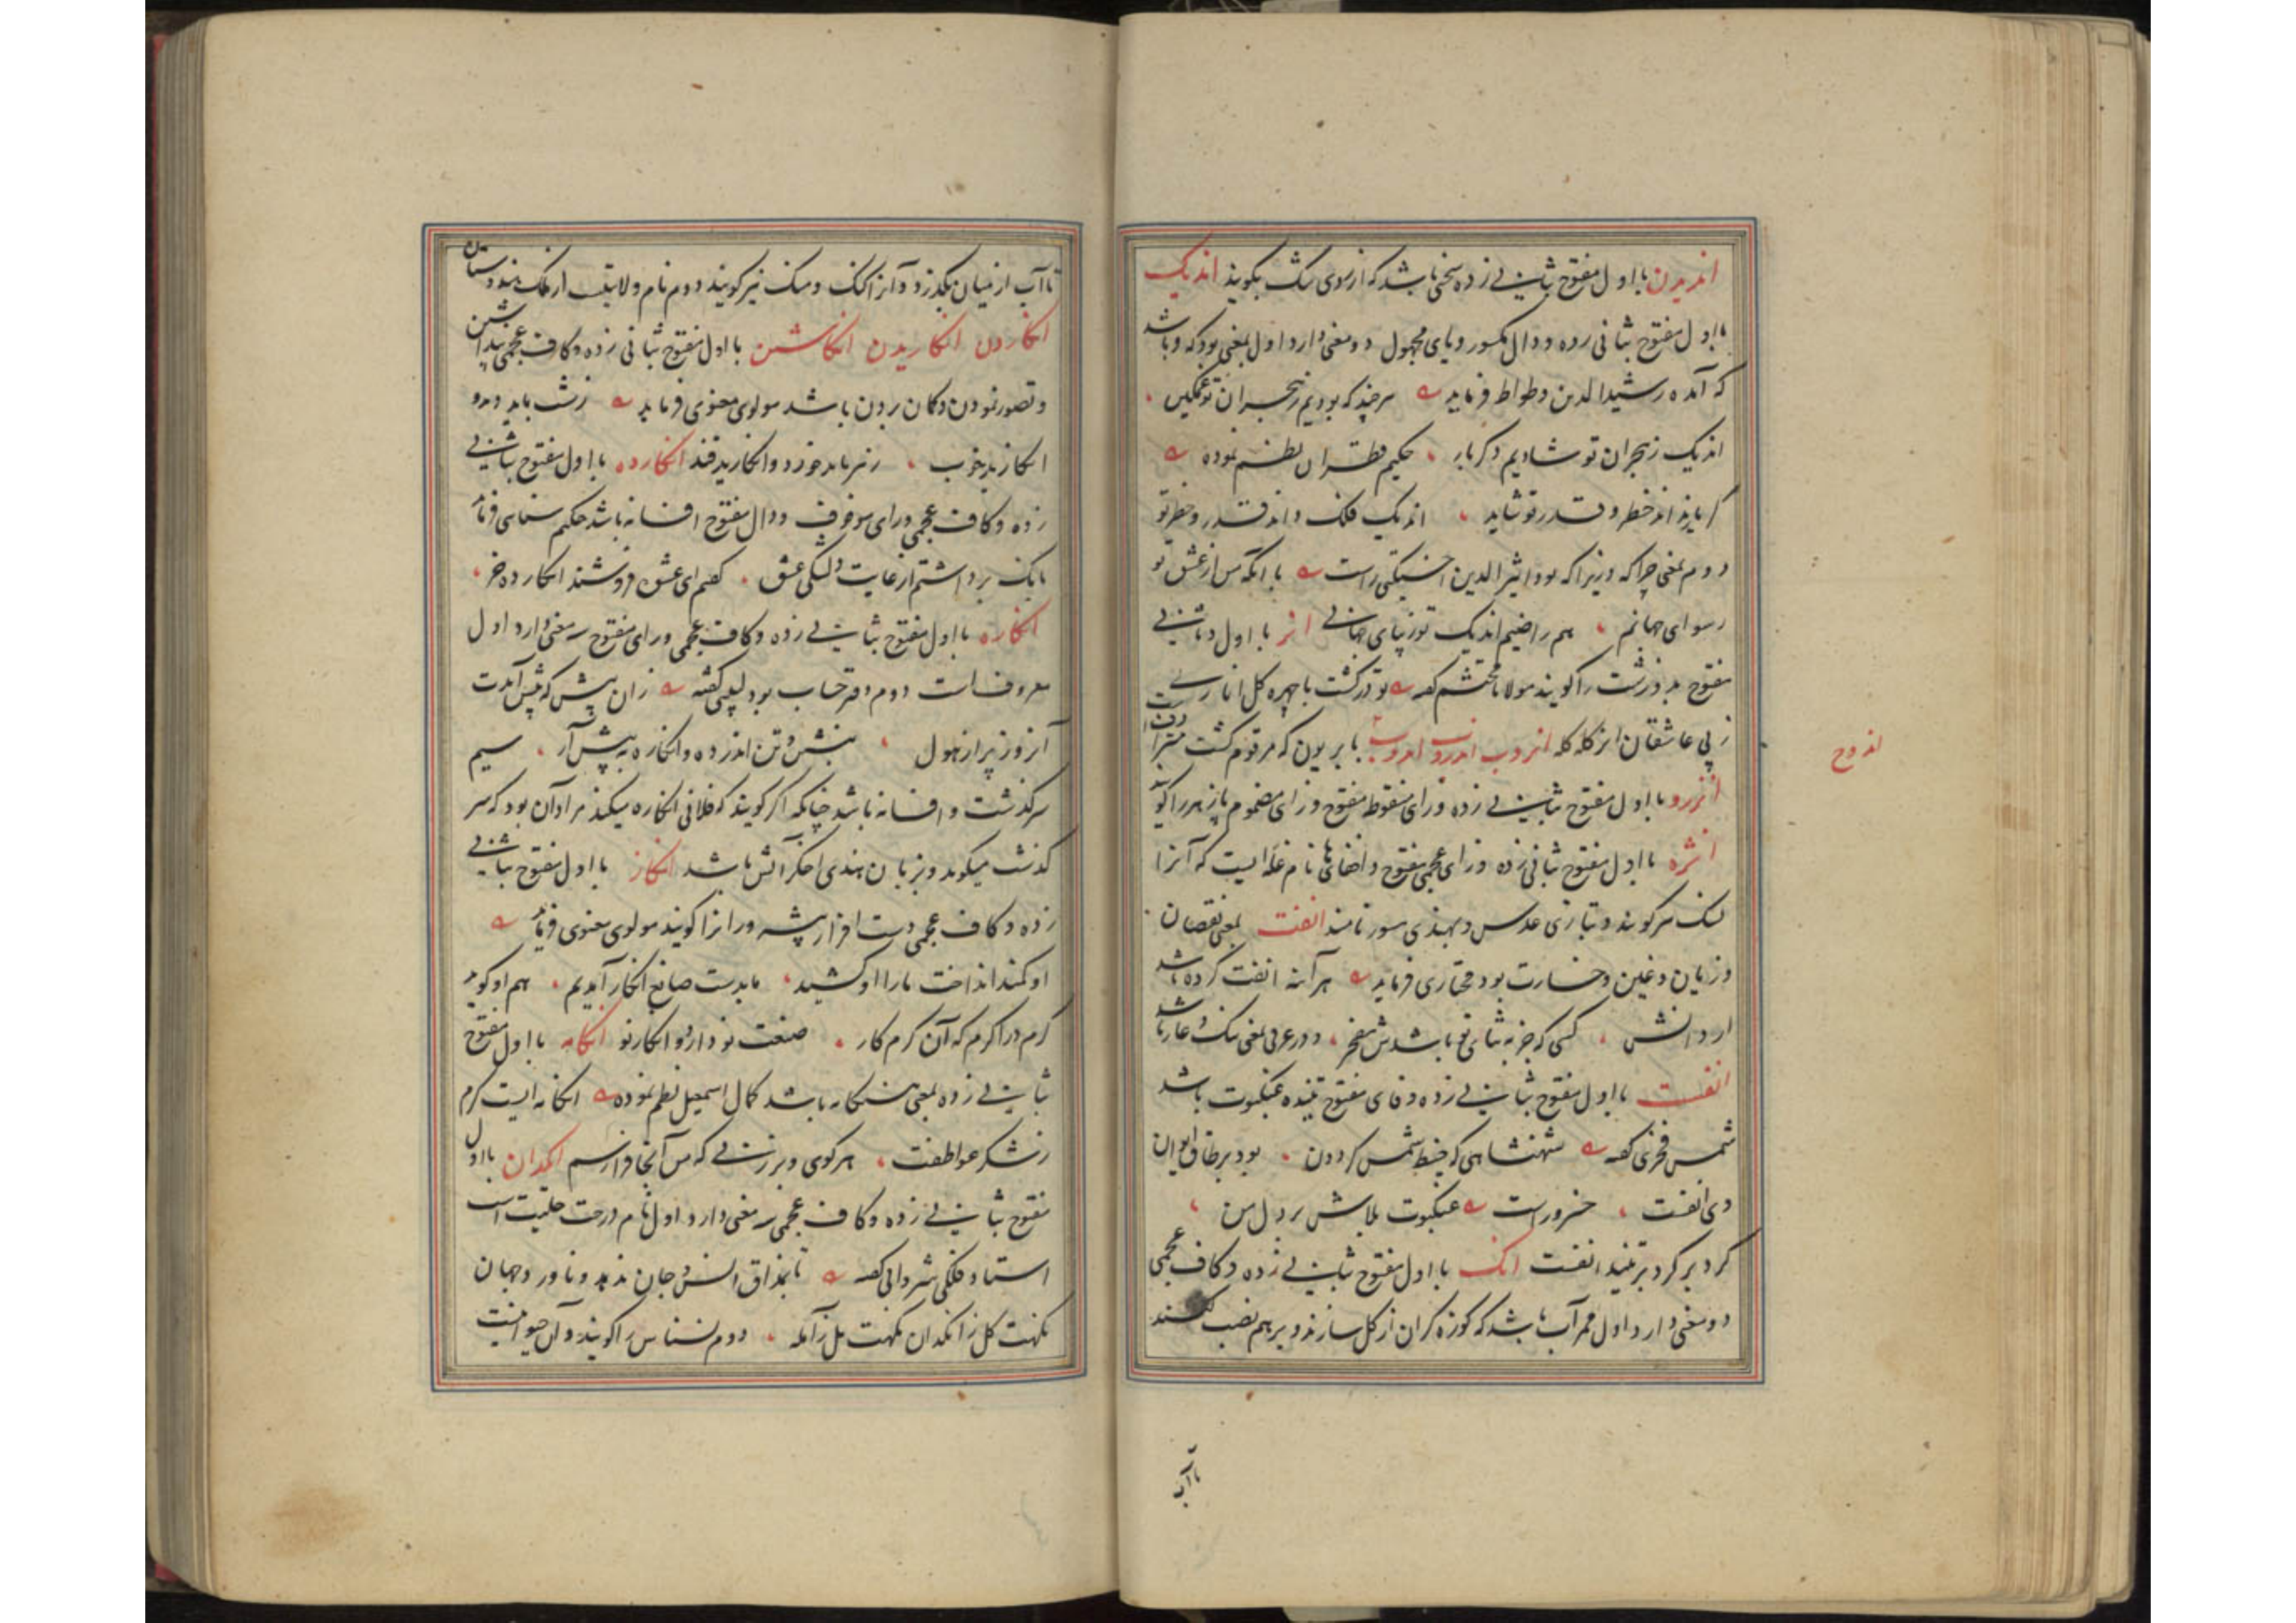 اندیدن با اول مفتوح بثانی زده سخنی باشد که از روی شک بگویند اندیک
با اول مفتوح بثانی زده و دال مکسور و یای مجهول دو معنی دارد اول بمعنی بود که و باشد
که آمده رشیدالدین وطواط فرماید هر چند که بودیم ز هجران تو غمگین
اندیک ز هجران تو شادیم دگر بار حکیم قطران نظم نموده
گر باید اند خطر و قدر تو شاید اندیک فلک و اند قدر و خطر تو
دوم بمعنی چرا که و زیرا که بود اثیرالدین اخسیکتی راست با آنکه من از عشق تو
رسوای جهانم هم راضیم اندیک تو زیبای جهانی انر با اول و ثانی
مفتوح بد و زشت را گویند مولانا محتشم گفته تو در گشت با چهره گل انار
ز پی عاشقان انر کله کله انروب اندروب بابریون که مرقوم گشت مترادف است
انزرو با اول مفتوح بثانی زده و زای منقوط مفتوح و زای مضموم پازهر را گویند
انژه با اول مفتوح بثانی زده و زای عجمی مفتوح و اخفای ها نام غله ایست که آنرا
نسک نیز گویند و بتازی عدس و بهندی مسور نامند انفت بمعنی نقصان
و زیان و غبن و خسارت بود مختاری فرماید هر آینه انفت کرده باشد
از دانش کسی که جز به ثنای تو باشدش مفخر و در عربی بمعنی ننگ و عار باشد
انفست با اول مفتوح بثانی زده و فای مفتوح تنیده عنکبوت باشد
شمس فخری گفته شهنشاهی که خیط شمس گردون بود بر طاق ایوان
وی انفست خسرو راست عنکبوت بلاش بر دل من
گرد بر گرد بر تنید انفست انگ با اول مفتوح بثانی زده و کاف عجمی
دو معنی دارد اول ممر آب باشد که کوزه گران از گل سازند و بر هم نصب کنند
تا آب
اندوح
تا آب از میان بگذرد و آنرا گنگ و منگ نیز گویند دوم نام ولایتیست از ملک هندوستان
انگاردن انگاریدن انگاشتن با اول مفتوح بثانی زده و کاف عجمی پنداشتن
و تصور نمودن و گمان بردن باشد مولوی معنوی فرماید زشت باید دید و
انگارید خوب زهر باید خورد و انگارید قند انگارده با اول مفتوح بثانی
زده و کاف عجمی و رای موقوف و دال مفتوح افسانه باشد حکیم سنائی فرماید
بانگ برداشتم از غایت دلتنگی عشق گفتم ای عشق فروشنده انگارده خر
انگاره با اول مفتوح بثانی زده و کاف عجمی و رای مفتوح سه معنی دارد اول
معروفست دوم دفتر حساب بود لبیبی گفته زان پیش که پیش آیدت
آنروز پر از هول بنشین و تن اندر ده و انگاره به پیش آر سیم
سرگذشت و افسانه باشد چنانکه اگر گویند که فلانی انگاره میکند مراد آن بود که سر
گذشت میگوید و بزبان هندی اخگر آتش باشد انگاز با اول مفتوح بثانی
زده و کاف عجمی دست افزار پیشه وران را گویند مولوی معنوی فرماید
او کمند انداخت ما را او کشید ما بدست صانع انگاز آمدیم هم او گوید
گرم در آ گرم که آن گرم کار صنعت نو دارد و انگاز نو انگامه با اول مفتوح
بثانی زده بمعنی هنگامه باشد کمال اسمعیل نظم نموده انگامه ایست گرم
ز شکر عواطفت هر کوی و برزنی که من آنجا فرا رسم انگدان با اول
مفتوح بثانی زده و کاف عجمی سه معنی دارد اول نام درخت حلتیت است
استاد فلکی شروانی گفته تا بمذاق انس و جان ندهد و ناورد جهان
نکهت گل ز انگدان نکهت مل ز آمله دوم نسناس را گویند و آن حیوانیست